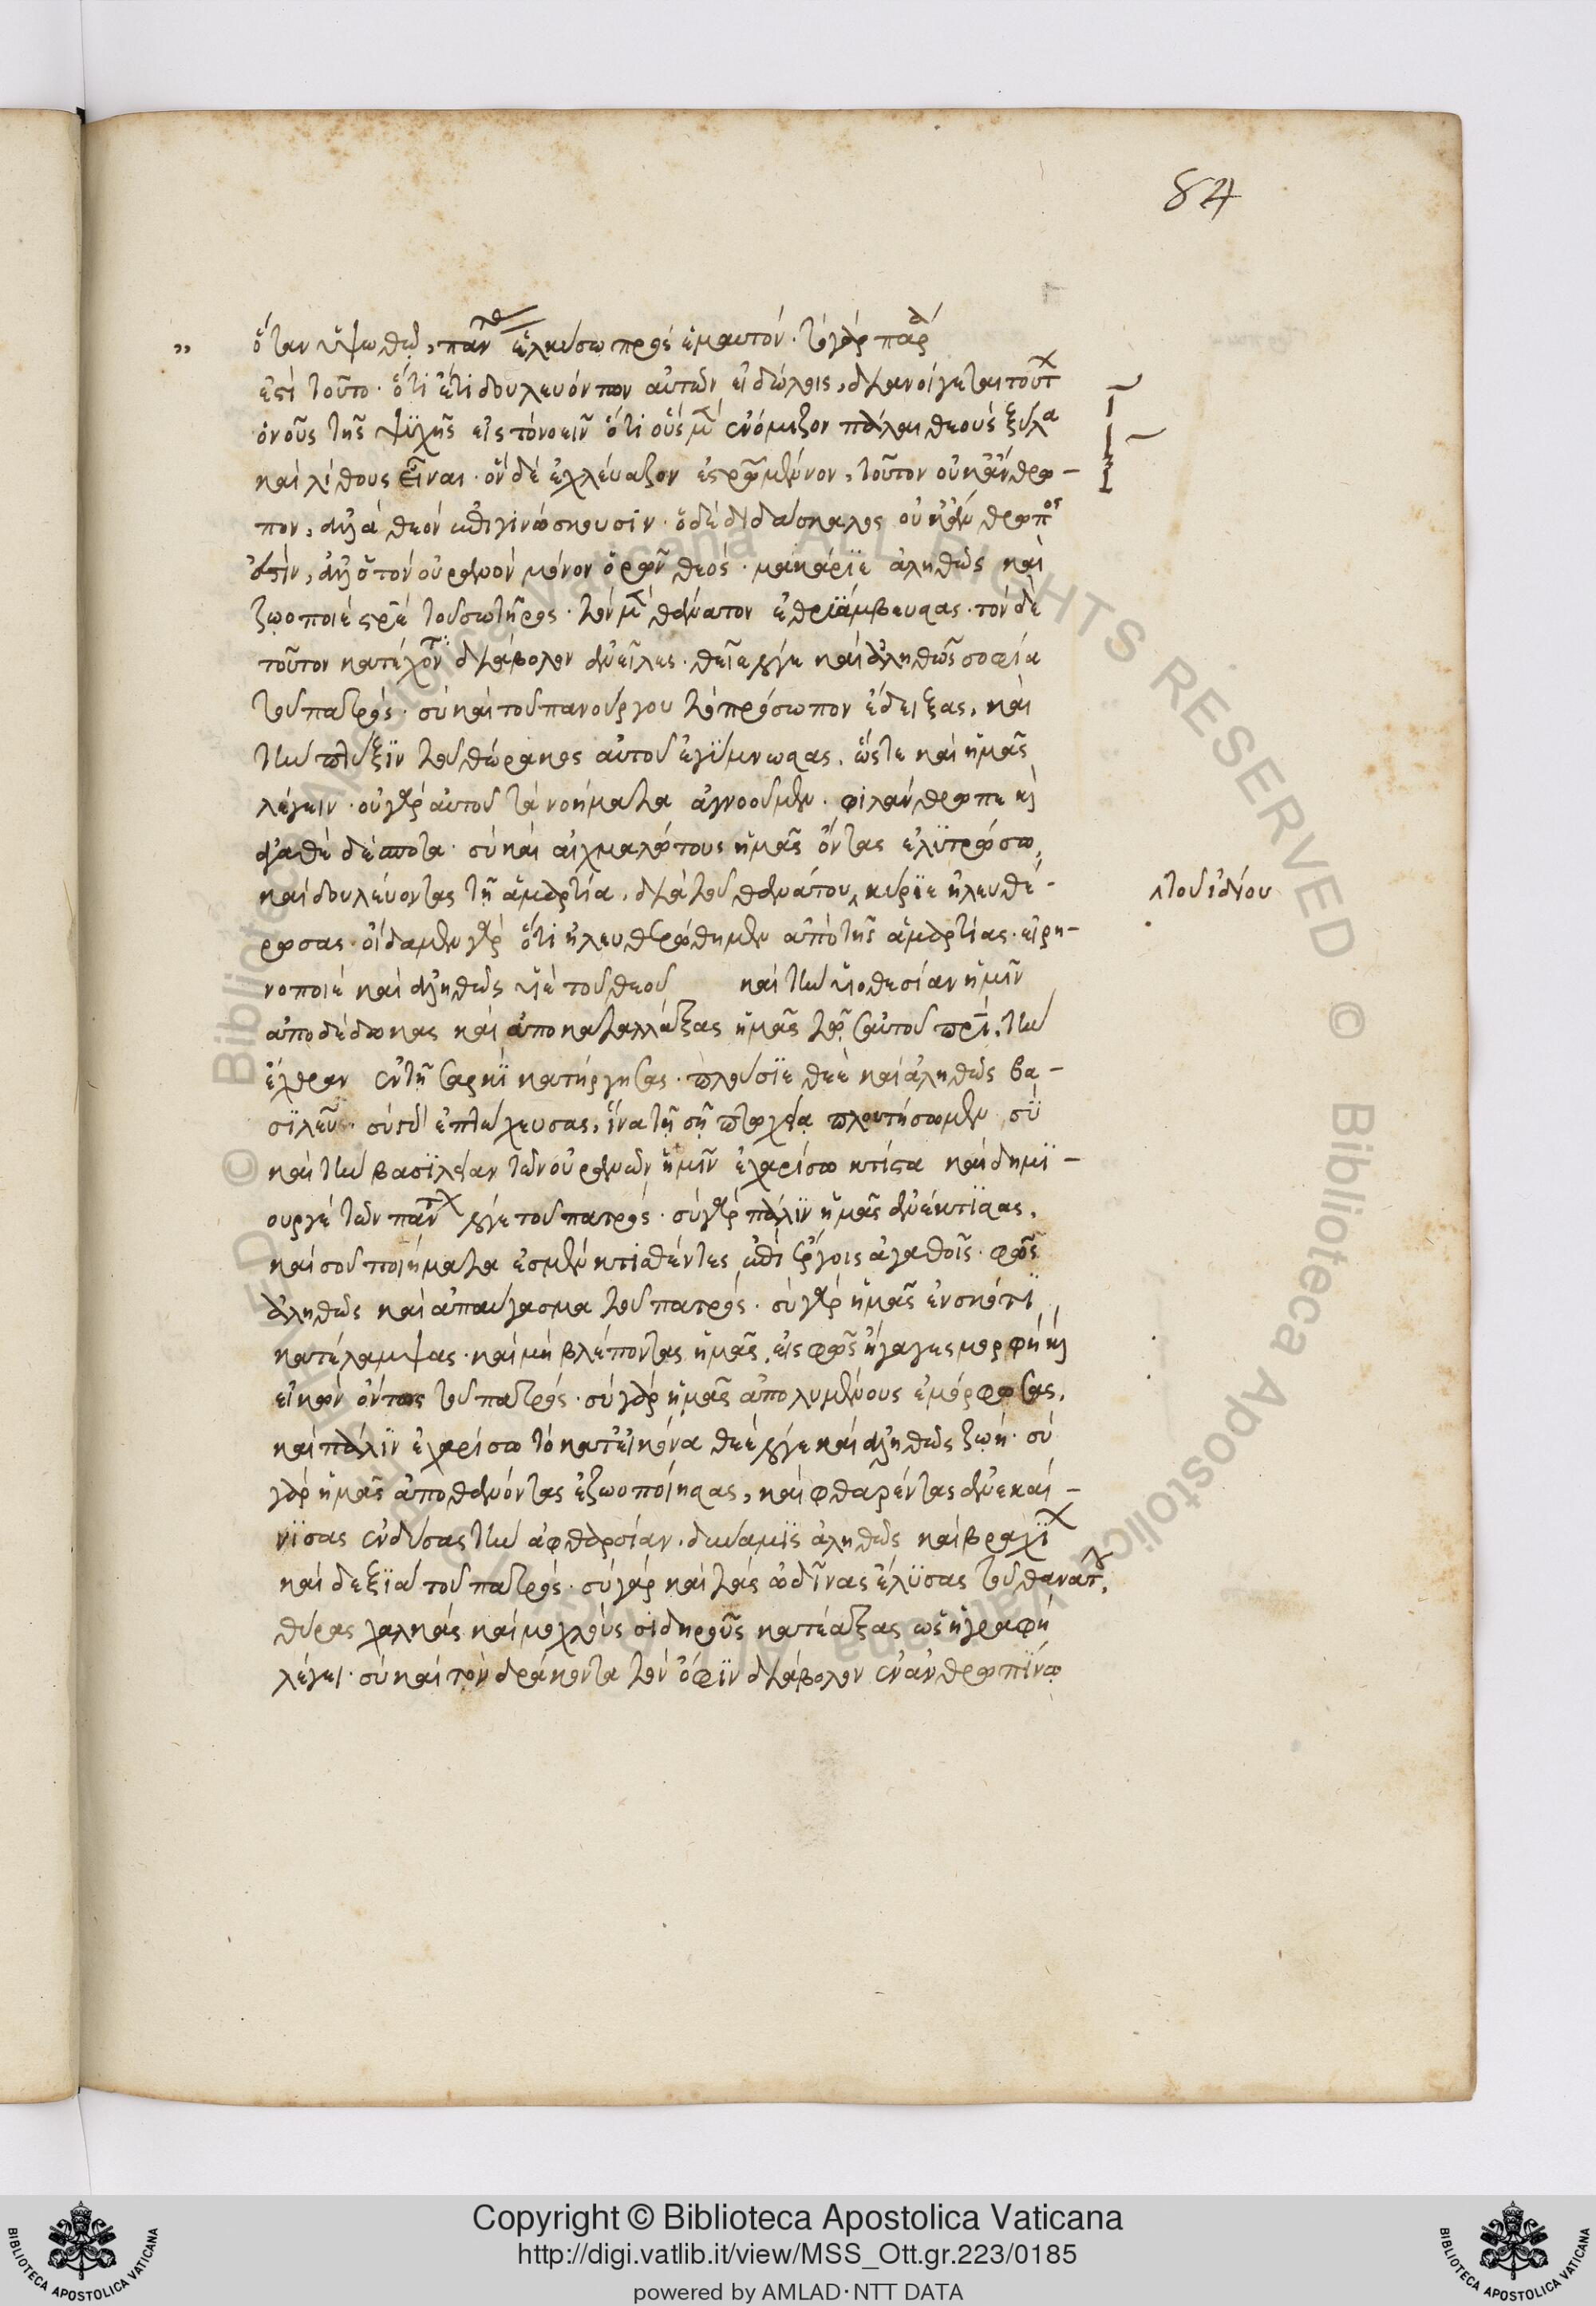 84
ὅταν ὑψωθῶ, πάντας ἑλκύσω πρὸς ἐμαυτόν. τὸ γὰρ παρά
ἐστὶ τοῦτο. ὅτι ἔτι δουλευόντων αὐτῶν εἰδώλοις, διανοίγεται τούτων
ὁ νοῦς τῆς ψυχῆς εἰς τὸ νοεῖν ὅτι οὓς μὲν ἐνόμιζον πάλαι θεοὺς ξύλα
καὶ λίθους εἶναι. ὃν δὲ ἐχλεύαζον ἐσταυρωμένον, τοῦτον οὐκ ἄνθρω-
πον, ἀλλὰ θεὸν ἐπιγινώσκουσιν. ὁ δὲ διδάσκαλος οὐκ ἄνθρωπος
ἐστὶν, ἀλλ' ὁ τὸν οὐρανὸν μόνον ὁρῶν θεός. μακάριε ἀληθῶς καὶ
ζωοποιὲ σταυρὲ τοῦ σωτῆρος. τὸν μὲν θάνατον ἐθριάμβευσας. τὸν δὲ
τοῦτον κατέχοντα διάβολον ἀνεῖλες. θεῖε λόγε καὶ ἀληθῶς σοφία
τοῦ πατρός. σὺ καὶ τοῦ πανούργου τὸ πρόσωπον ἔδειξας, καὶ
τὴν πτύξιν τοῦ θώρακος αὐτοῦ ἐγύμνωσας. ὥστε καὶ ἡμᾶς
λέγειν. οὐ γὰρ αὐτοῦ τὰ νοήματα ἀγνοοῦμεν. φιλάνθρωπε καὶ
ἀγαθὲ δέσποτα. σὺ καὶ αἰχμαλώτους ἡμᾶς ὄντας ἐλυτρώσω,
καὶ δουλεύοντας τῇ ἁμαρτία, διὰ τοῦ θανάτου κύριε ἠλευθέ-
τοῦ ἰδίου
ρωσας. οἴδαμεν γὰρ ὅτι ἠλευθερώθημεν ἀπὸ τῆς ἁμαρτίας. εἰρη-
νοποιὲ καὶ ἀληθῶς υἱὲ τοῦ θεοῦ καὶ τὴν υἱοθεσίαν ἡμῖν
ἀποδέδωκας καὶ ἀποκαταλλάξας ἡμᾶς τῷ σαυτοῦ πατρί, τὴν
ἔχθραν ἐν τῇ σαρκὶ κατήργησας. πλούσιε θεὲ καὶ ἀληθῶς βα-
σιλεῦ. σὺ ἐπτώχευσας, ἵνα τῇ σῇ πτωχείᾳ πλουτήσωμεν. σὺ
καὶ τὴν βασιλείαν τῶν οὐρανῶν ἡμῖν ἐχαρίσω κτίστα καὶ δημι-
ουργὲ τῶν πάντων λόγε τοῦ πατρός. σὺ γὰρ πάλιν ἡμᾶς ἀνέκτισας,
καὶ σοῦ ποιήματα ἐσμὲν κτισθέντες ἐπὶ ἔργοις ἀγαθοῖς. φῶς
ἀληθῶς καὶ ἀπαύγασμα τοῦ πατρός. σὺ γὰρ ἡμᾶς ἐν σκότει
κατέλαμψας. καὶ μὴ βλέποντας ἡμᾶς, εἰς φῶς ἤγαγες μορφὴ καὶ
εἰκὼν ὄντως τοῦ πατρός. σὺ γὰρ ἡμᾶς ἀπολυμένους ἐμόρφωσας,
καὶ πάλιν ἐχαρίσω τὸ κατ' εἰκόνα θεὲ λόγε καὶ ἀληθῶς ζωή. σὺ
γὰρ ἡμᾶς ἀποθανόντας ἐζωοποίησας, καὶ φθαρέντας ἀνεκαί-
νισας ἐνδύσας τὴν ἀφθαρσίαν. δύναμις ἀληθῶς καὶ βραχίων
καὶ δεξιὰ τοῦ πατρός. σὺ γὰρ καὶ τὰς ὠδῖνας ἔλυσας τοῦ θανάτου,
θύρας χαλκᾶς καὶ μοχλοὺς σιδηροῦς κατέαξας ὡς ἡ γραφὴ
λέγει. σὺ καὶ τὸν δράκοντα τὸν ὄφιν διάβολον ἐν ἀνθρωπίνω
Copyright © Biblioteca Apostolica Vaticana
http://digi.vatlib.it/view/MSS_Ott.gr.223/0185
powered by AMLAD·NTT DATA